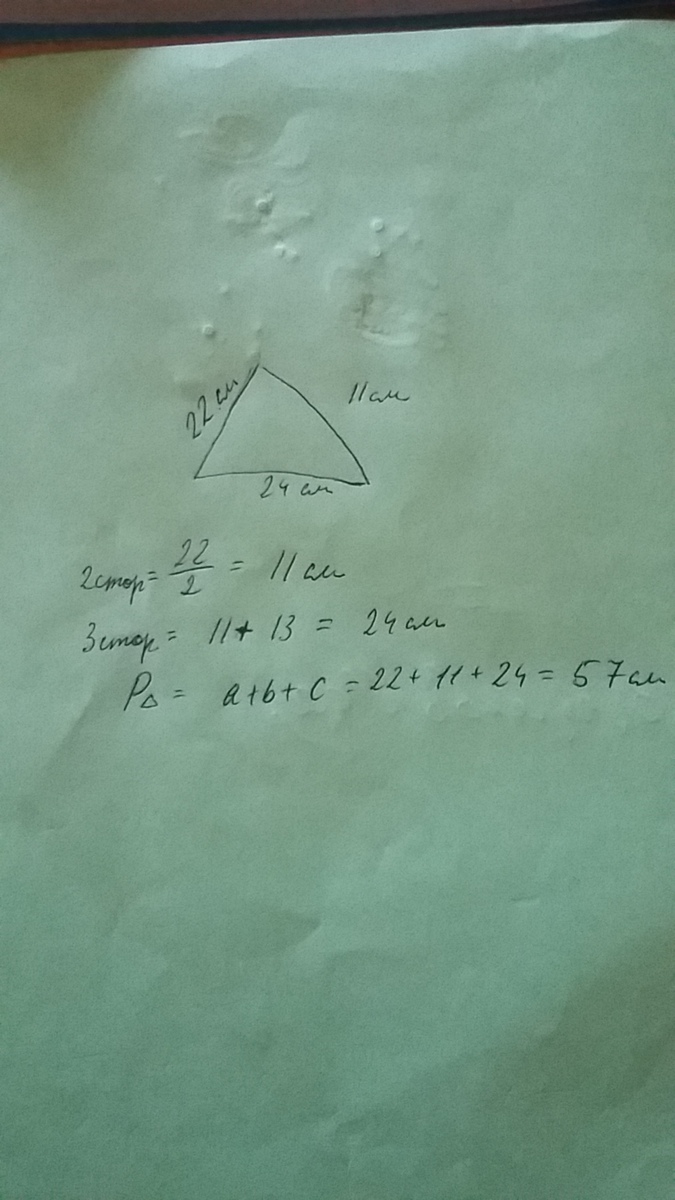 22 см
11см
24 см
2стор = 22/2 = 11 см
3стор = 11 + 13 = 24 см
P△ = a+b+c = 22+11+24 = 57см